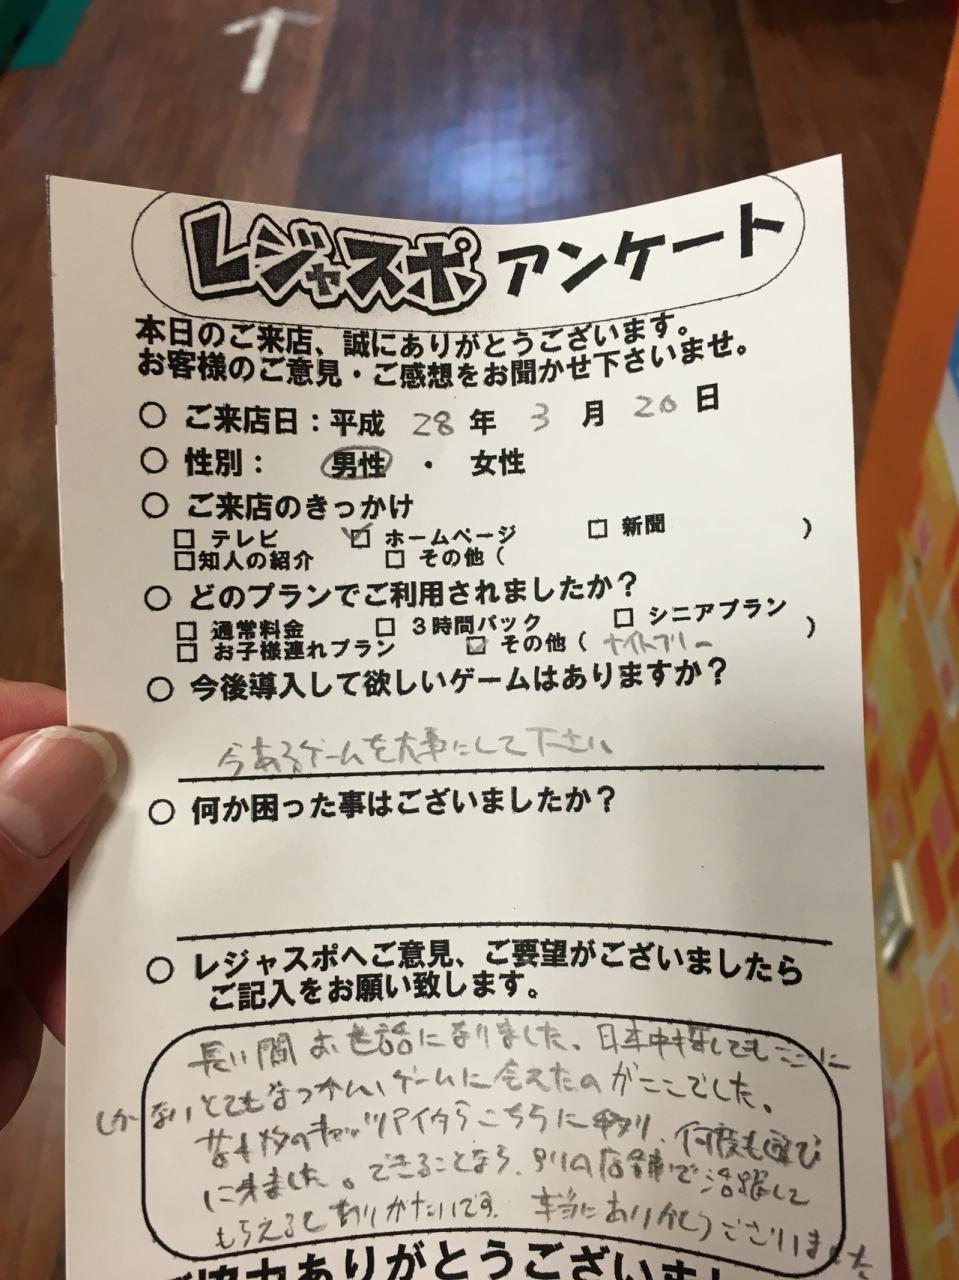 レジャスポ アンケート
本日のご来店、誠にありがとうございます。
お客様のご意見・ご感想をお聞かせ下さいませ。
○ ご来店日：平成 28 年 3 月 20 日
○ 性別： 男性 ・ 女性
○ ご来店のきっかけ
□ テレビ □ ホームページ □ 新聞
□知人の紹介 □ その他（ ）
○ どのプランでご利用されましたか？
□ 通常料金 □ ３時間パック □ シニアプラン
□ お子様連れプラン □ その他（ ナイトフリー ）
○ 今後導入して欲しいゲームはありますか？
今あるゲームを大事にして下さい
○ 何か困った事はございましたか？
○ レジャスポへご意見、ご要望がございましたら
ご記入をお願い致します。
長い間お世話になりました。日本中探してもここに
しかないとてもなつかしいゲームに会えたのがここでした。
こちらに 何度も遊び
に来ました。できることなら、別の店舗で活躍して
もらえるとありがたいです。本当にありがとうございました
ご協力ありがとうございまし